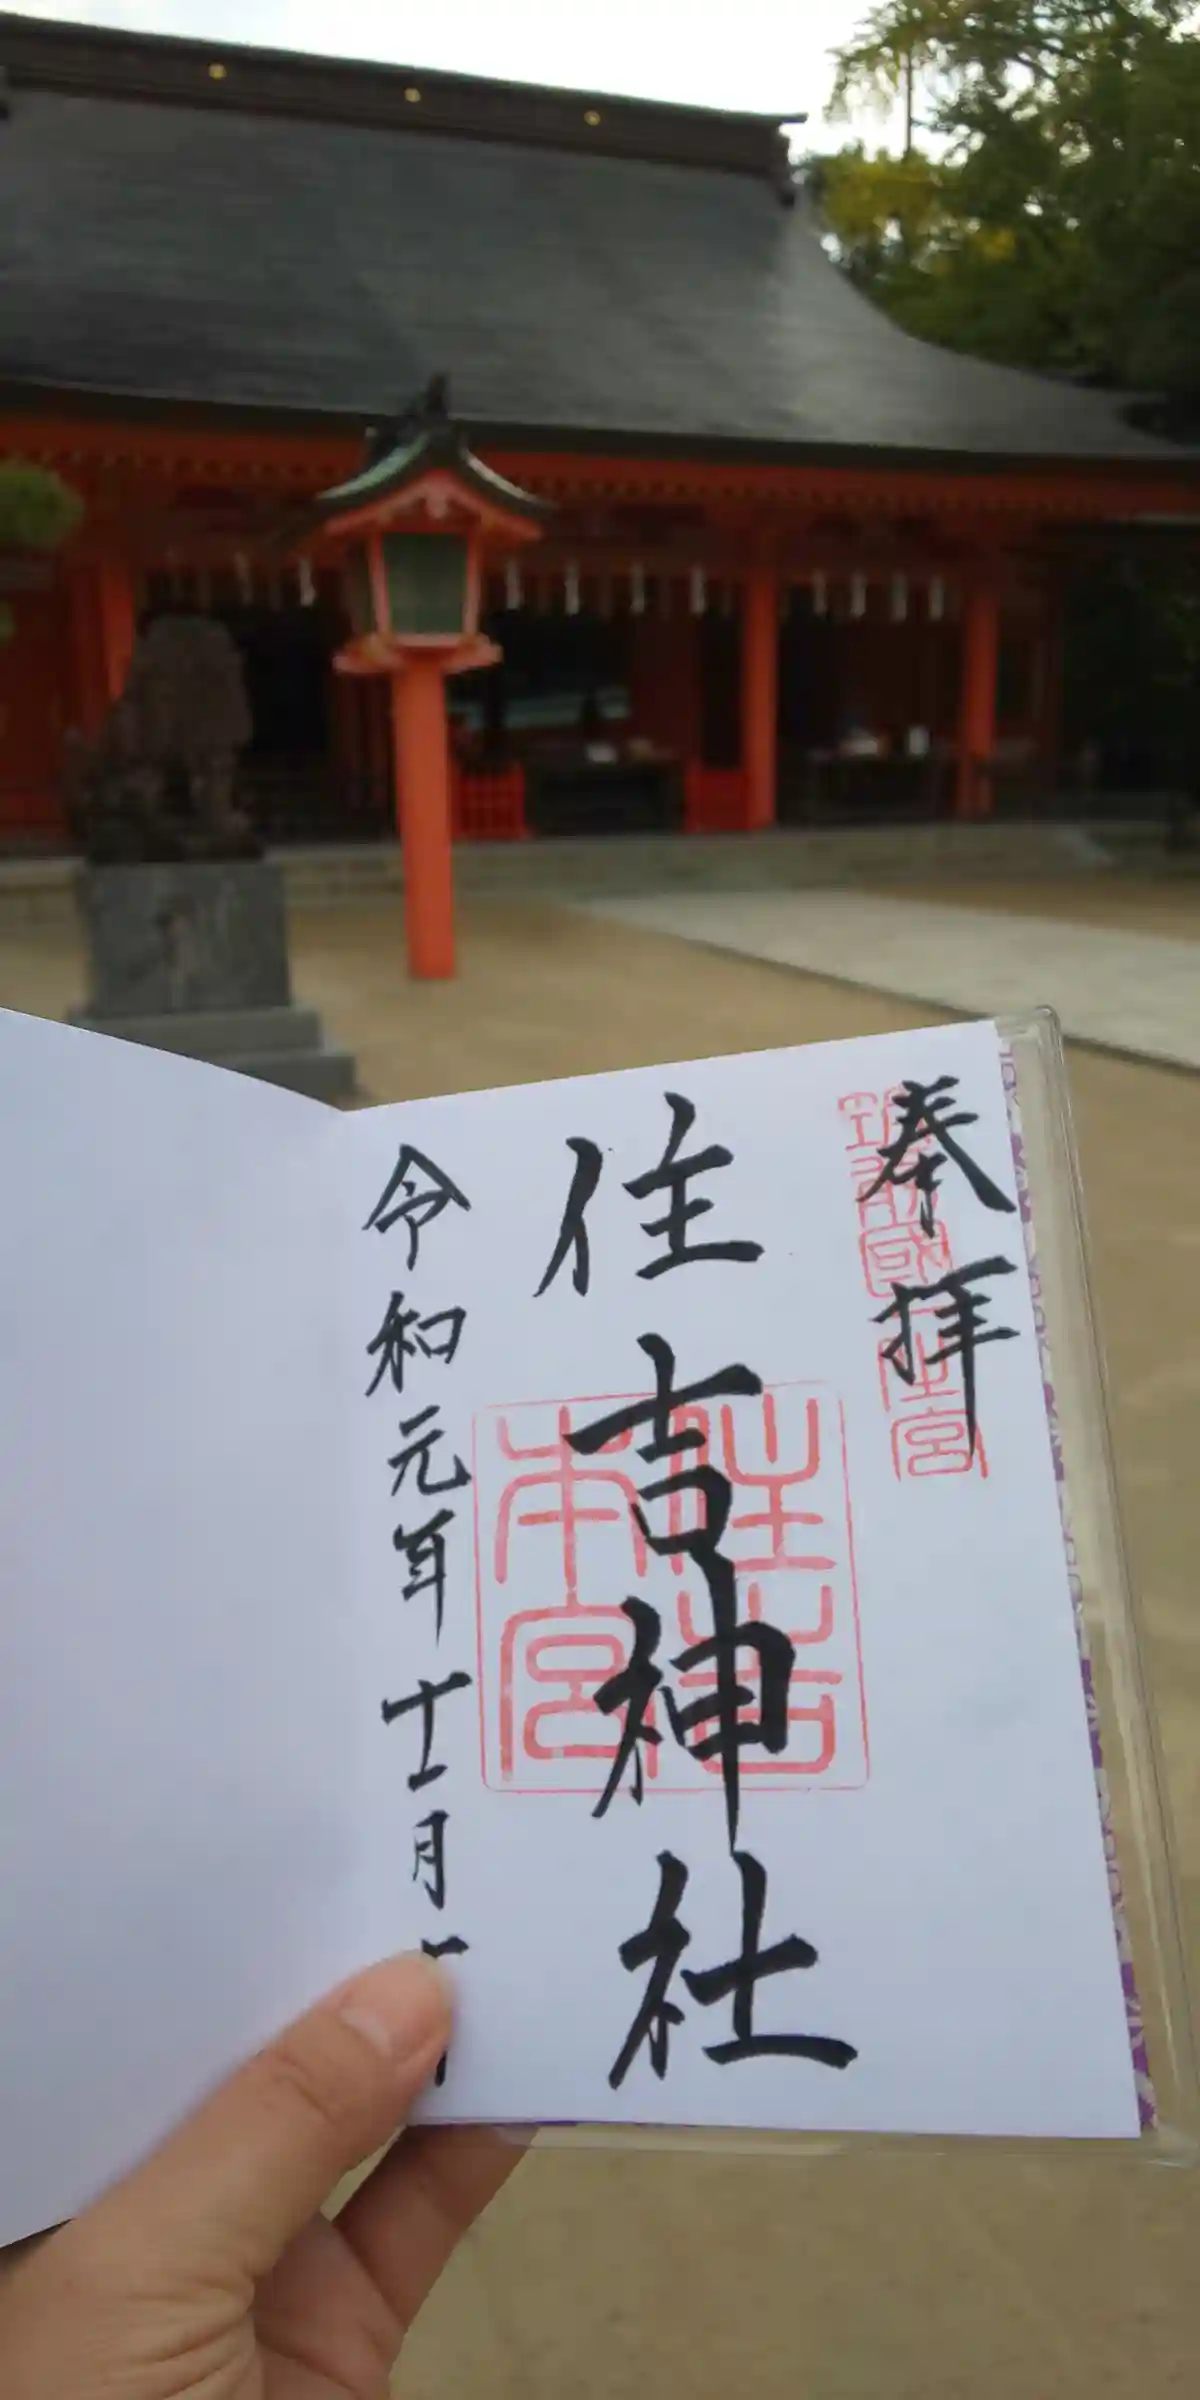 奉拝
筑前國一之宮
住吉神社
住吉
本宮
令和元年十一月